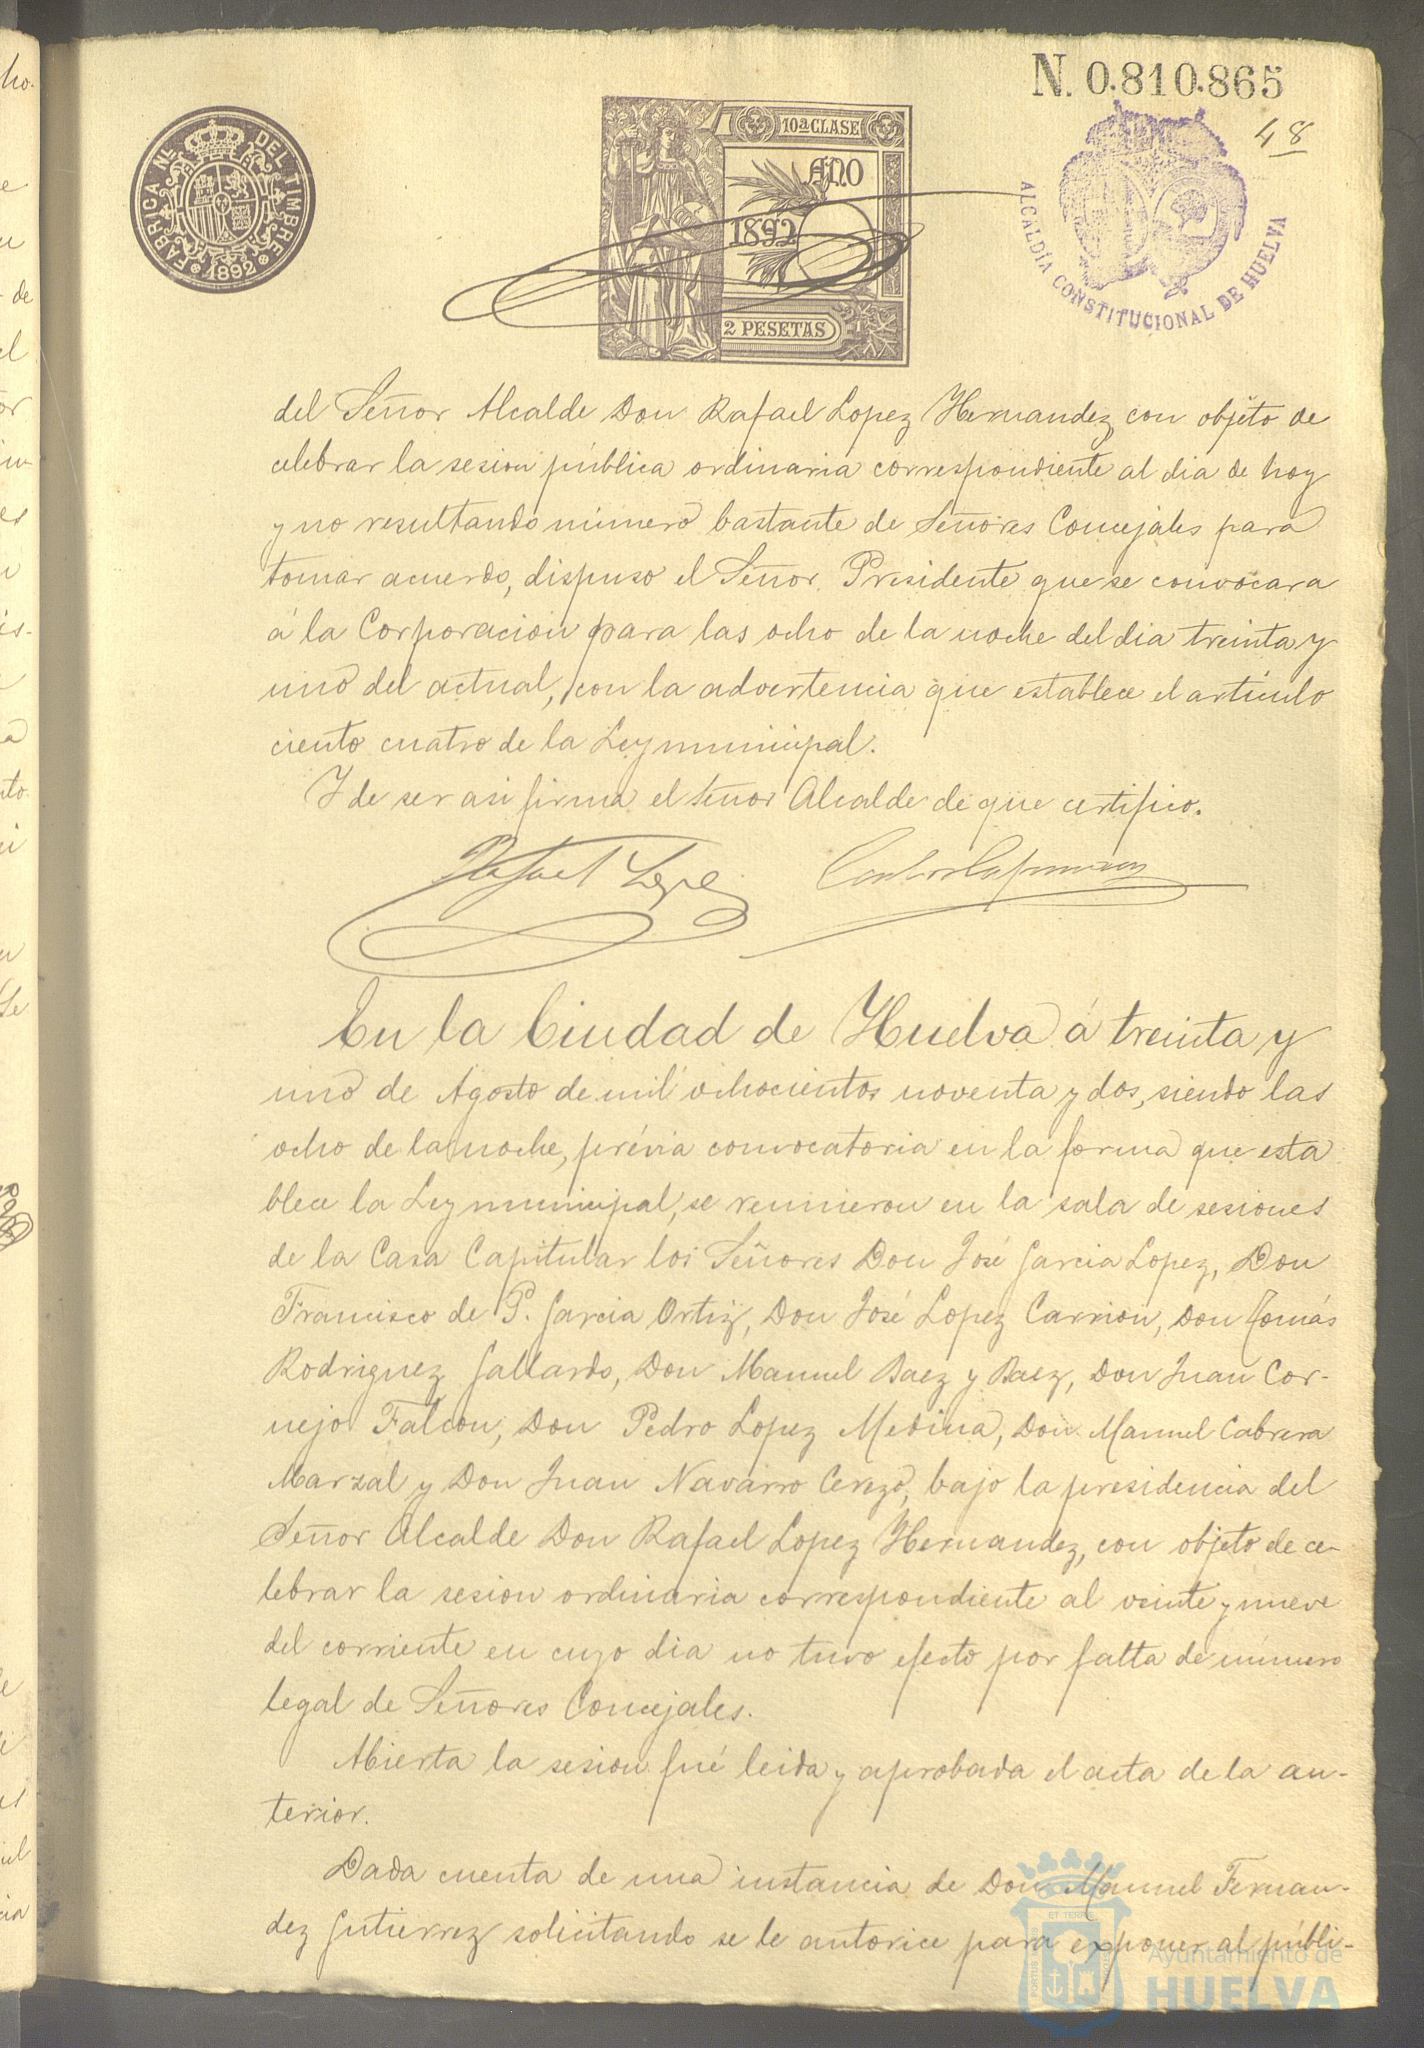 N. 0.810.865
48
FABRICA NAL DEL TIMBRE
1892
10ª CLASE
AÑO
1892
2 PESETAS
ALCALDÍA CONSTITUCIONAL DE HUELVA
del Señor Alcalde Don Rafael Lopez Hernandez, con objeto de
celebrar la sesion pública ordinaria correspondiente al dia de hoy
y no resultando número bastante de Señores Concejales para
tomar acuerdo, dispuso el Señor Presidente que se convocara
á la Corporacion para las ocho de la noche del dia treinta y
uno del actual, con la advertencia que establece el artículo
ciento cuatro de la Ley municipal.
Y de ser asi firma el Señor Alcalde de que certifico.
Rafael Lopez
En la Ciudad de Huelva á treinta y
uno de Agosto de mil ochocientos noventa y dos, siendo las
ocho de la noche, prévia convocatoria en la forma que esta
blece la Ley municipal, se reunieron en la sala de sesiones
de la Casa Capitular los Señores Don José Garcia Lopez, Don
Francisco de P. Garcia Ortiz, Don José Lopez Carrion, Don Tomás
Rodriguez Gallardo, Don Manuel Baez y Baez, Don Juan Cor-
nejo Falcon, Don Pedro Lopez Medina, Don Manuel Cabrera
Marzal y Don Juan Navarro Cerezo, bajo la presidencia del
Señor Alcalde Don Rafael Lopez Hernandez, con objeto de ce-
lebrar la sesion ordinaria correspondiente al veinte y nueve
del corriente en cuyo dia no tuvo efecto por falta de número
legal de Señores Concejales.
Abierta la sesion fué leida y aprobada el acta de la an-
terior.
Dada cuenta de una instancia de Don Manuel Fernan-
dez Gutierrez solicitando se le autorice para exponer al públi-
Ayuntamiento de
HUELVA